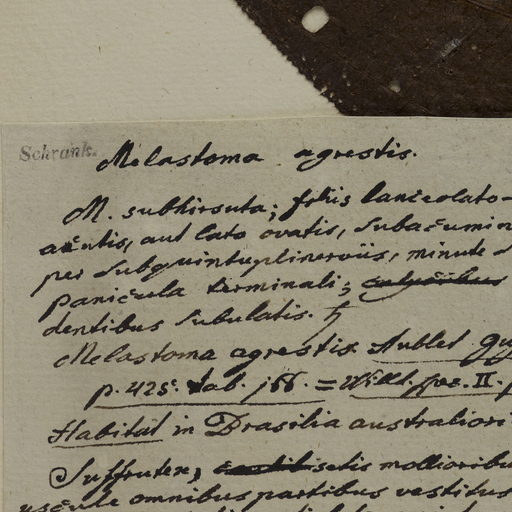 Schrank.
Melastoma agrestis.
M. subhirsuta; foliis lanceolato-
acutis, aut lato ovatis, subacumin
per subquintuplinerviis, minute s
Panicula terminali;
dentibus subulatis. ♄
Melastoma agrestis Aublet. gu
p. 425. tab. 166. = Willd. spec. II. p
Habitat in Brasilia australiori
Suffrutex, setis mollioribu
uscule omnibus partibus vestitus